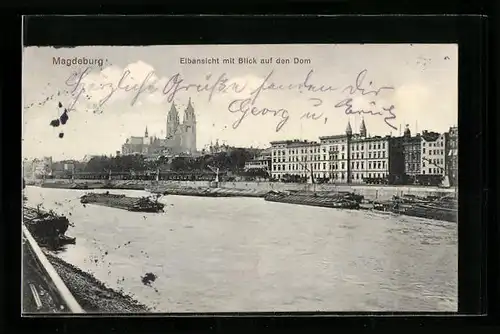 Magdeburg
Elbansicht mit Blick auf den Dom
Herzliche Grüße senden Dir
Georg u.